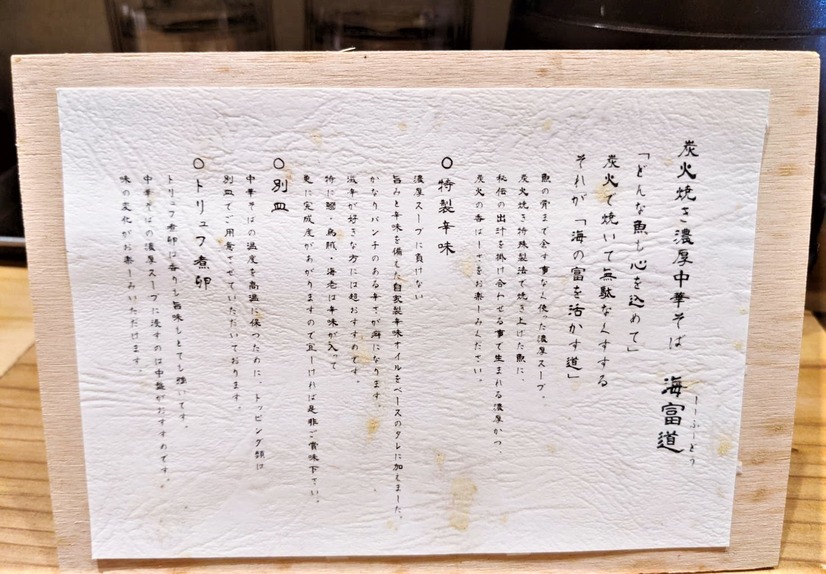 炭火焼き濃厚中華そば 海富道
しーふーどう
「どんな魚も心を込めて」
炭火で焼いて無駄なくする
それが「海の富を活かす道」
魚の骨まで余す事なく使った濃厚スープ。
炭火焼き特殊製法で焼き上げた魚に、
秘伝の出汁を掛け合わせる事で生まれる濃厚かつ、
炭火の香ばしさをお楽しみください。
○特製辛味
濃厚スープに負けない
旨みと辛味を備えた自家製辛味オイルをベースのタレに加えました。
かなりパンチのある辛さが癖になります。
激辛が好きな方には超おすすめです。
特に蟹・烏賊・海老は辛味が入って
更に完成度があがりますので宜しければ是非ご賞味下さい。
○別皿
中華そばの温度を高温に保つために、トッピング類は
別皿でご用意させていただいております。
○トリュフ煮卵
トリュフ煮卵は香りも旨味もとても強いです。
中華そばの濃厚スープに浸すのは中盤がおすすめです。
味の変化がお楽しみいただけます。